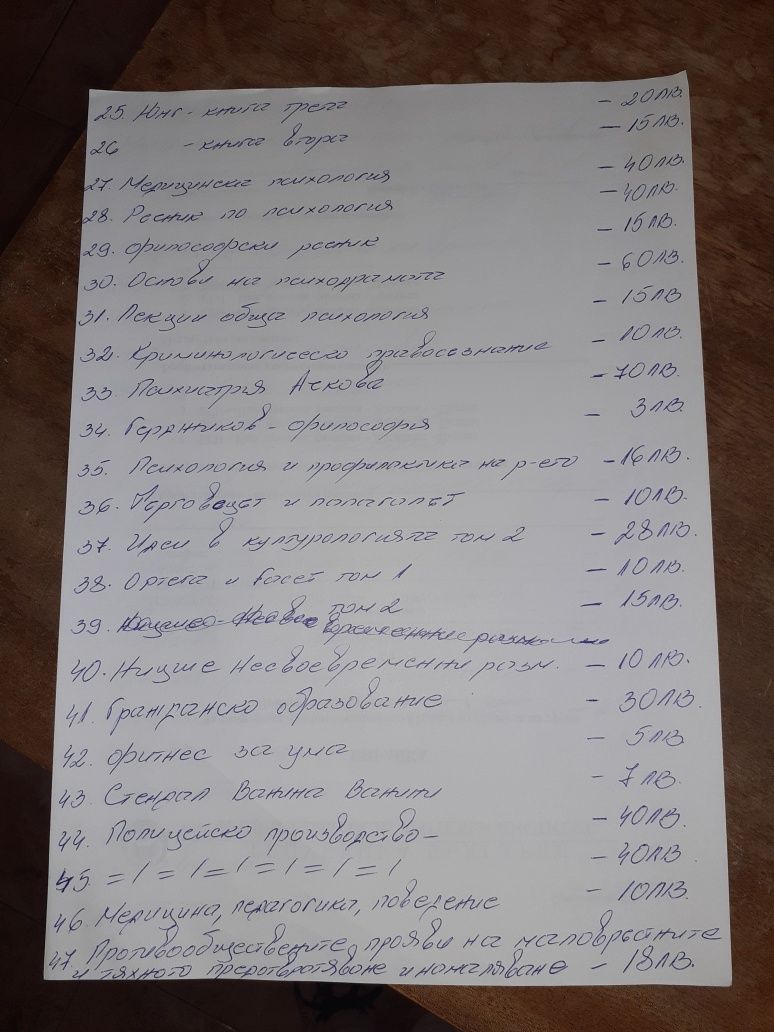 25. Юнг - книга трета - 20лв.
26 - книга втора - 15лв.
27. Медицинска психология - 40лв.
28. Речник по психология - 40лв.
29. Философски речник - 15лв.
30. Основи на психодрамата - 60лв.
31. Лекции обща психология - 15лв
32. Криминологическо правосъзнание - 10лв.
33. Психиатрия Ачкова - 70лв.
34. Герджиков - философия - 3лв.
35. Психология и профилактика на р-ето - 16лв.
36. и - 10лв.
37. Идеи в културологията том 2 - 28лв.
38. Ортега и Гасет том 1 - 10лв.
39. том 2 - 15лв.
40. Ницше Несвоевременни разм. - 10лв.
41. Гражданско образование - 30лв.
42. Фитнес за ума - 5лв
43. Стендал Ванина Ванини - 7лв.
44. Полицейско производство - - 40лв.
45. = / = / = / = / = / = / - 40лв
46. Медицина, педагогика, поведение - 10лв.
47. Противообществените прояви на маловръстните
и тяхното предотвратяване и намаляване - 18лв.